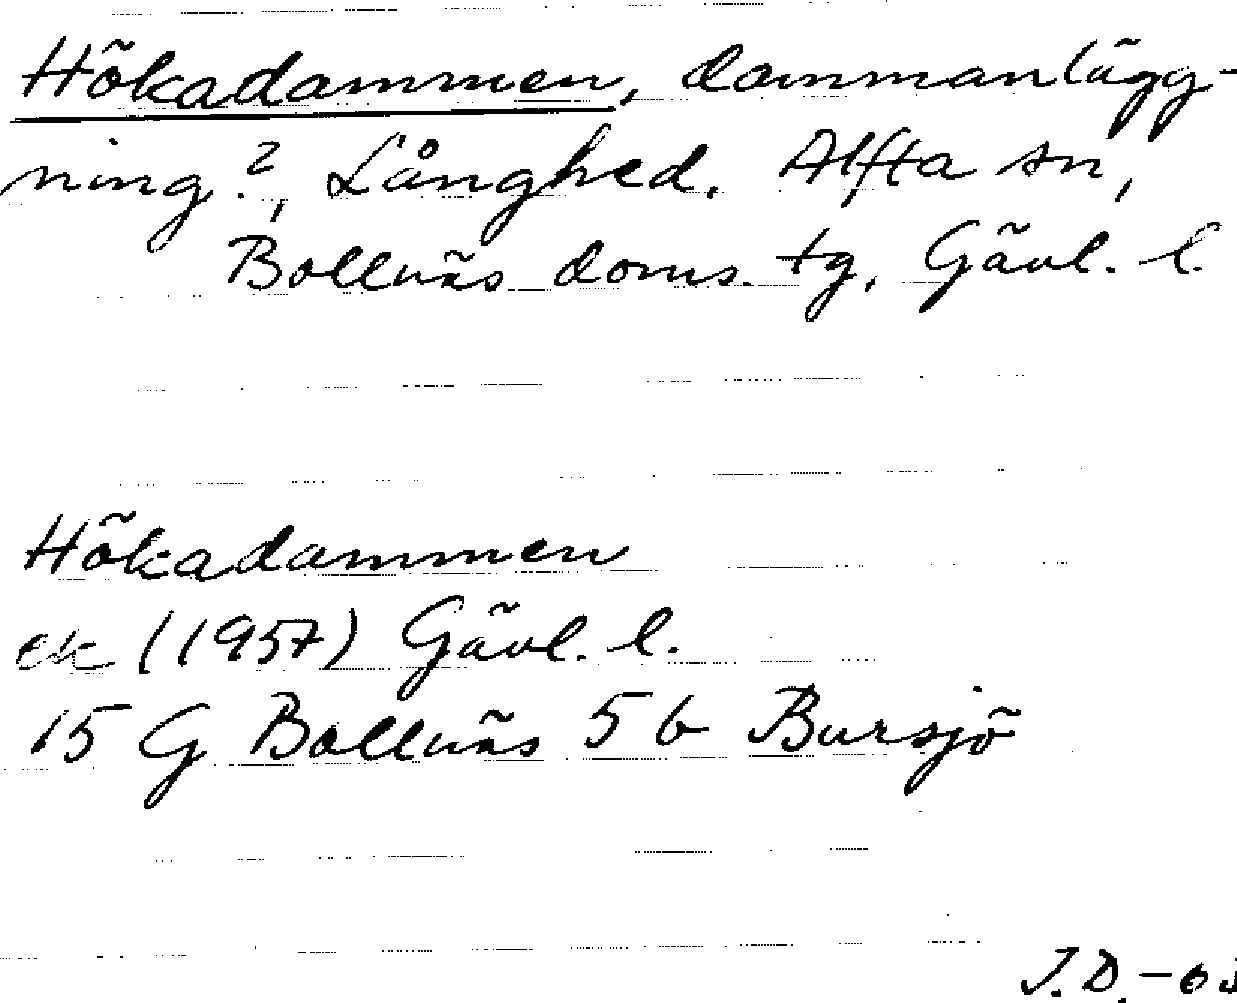 Hökadammen, dammanlägg-
ning?, Långhed. Alfta sn,
Bollnäs doms. tg, Gävl. l.
Hökadammen
ek (1957) Gävl. l.
15 G Bollnäs 5 b Bursjö
J.D.